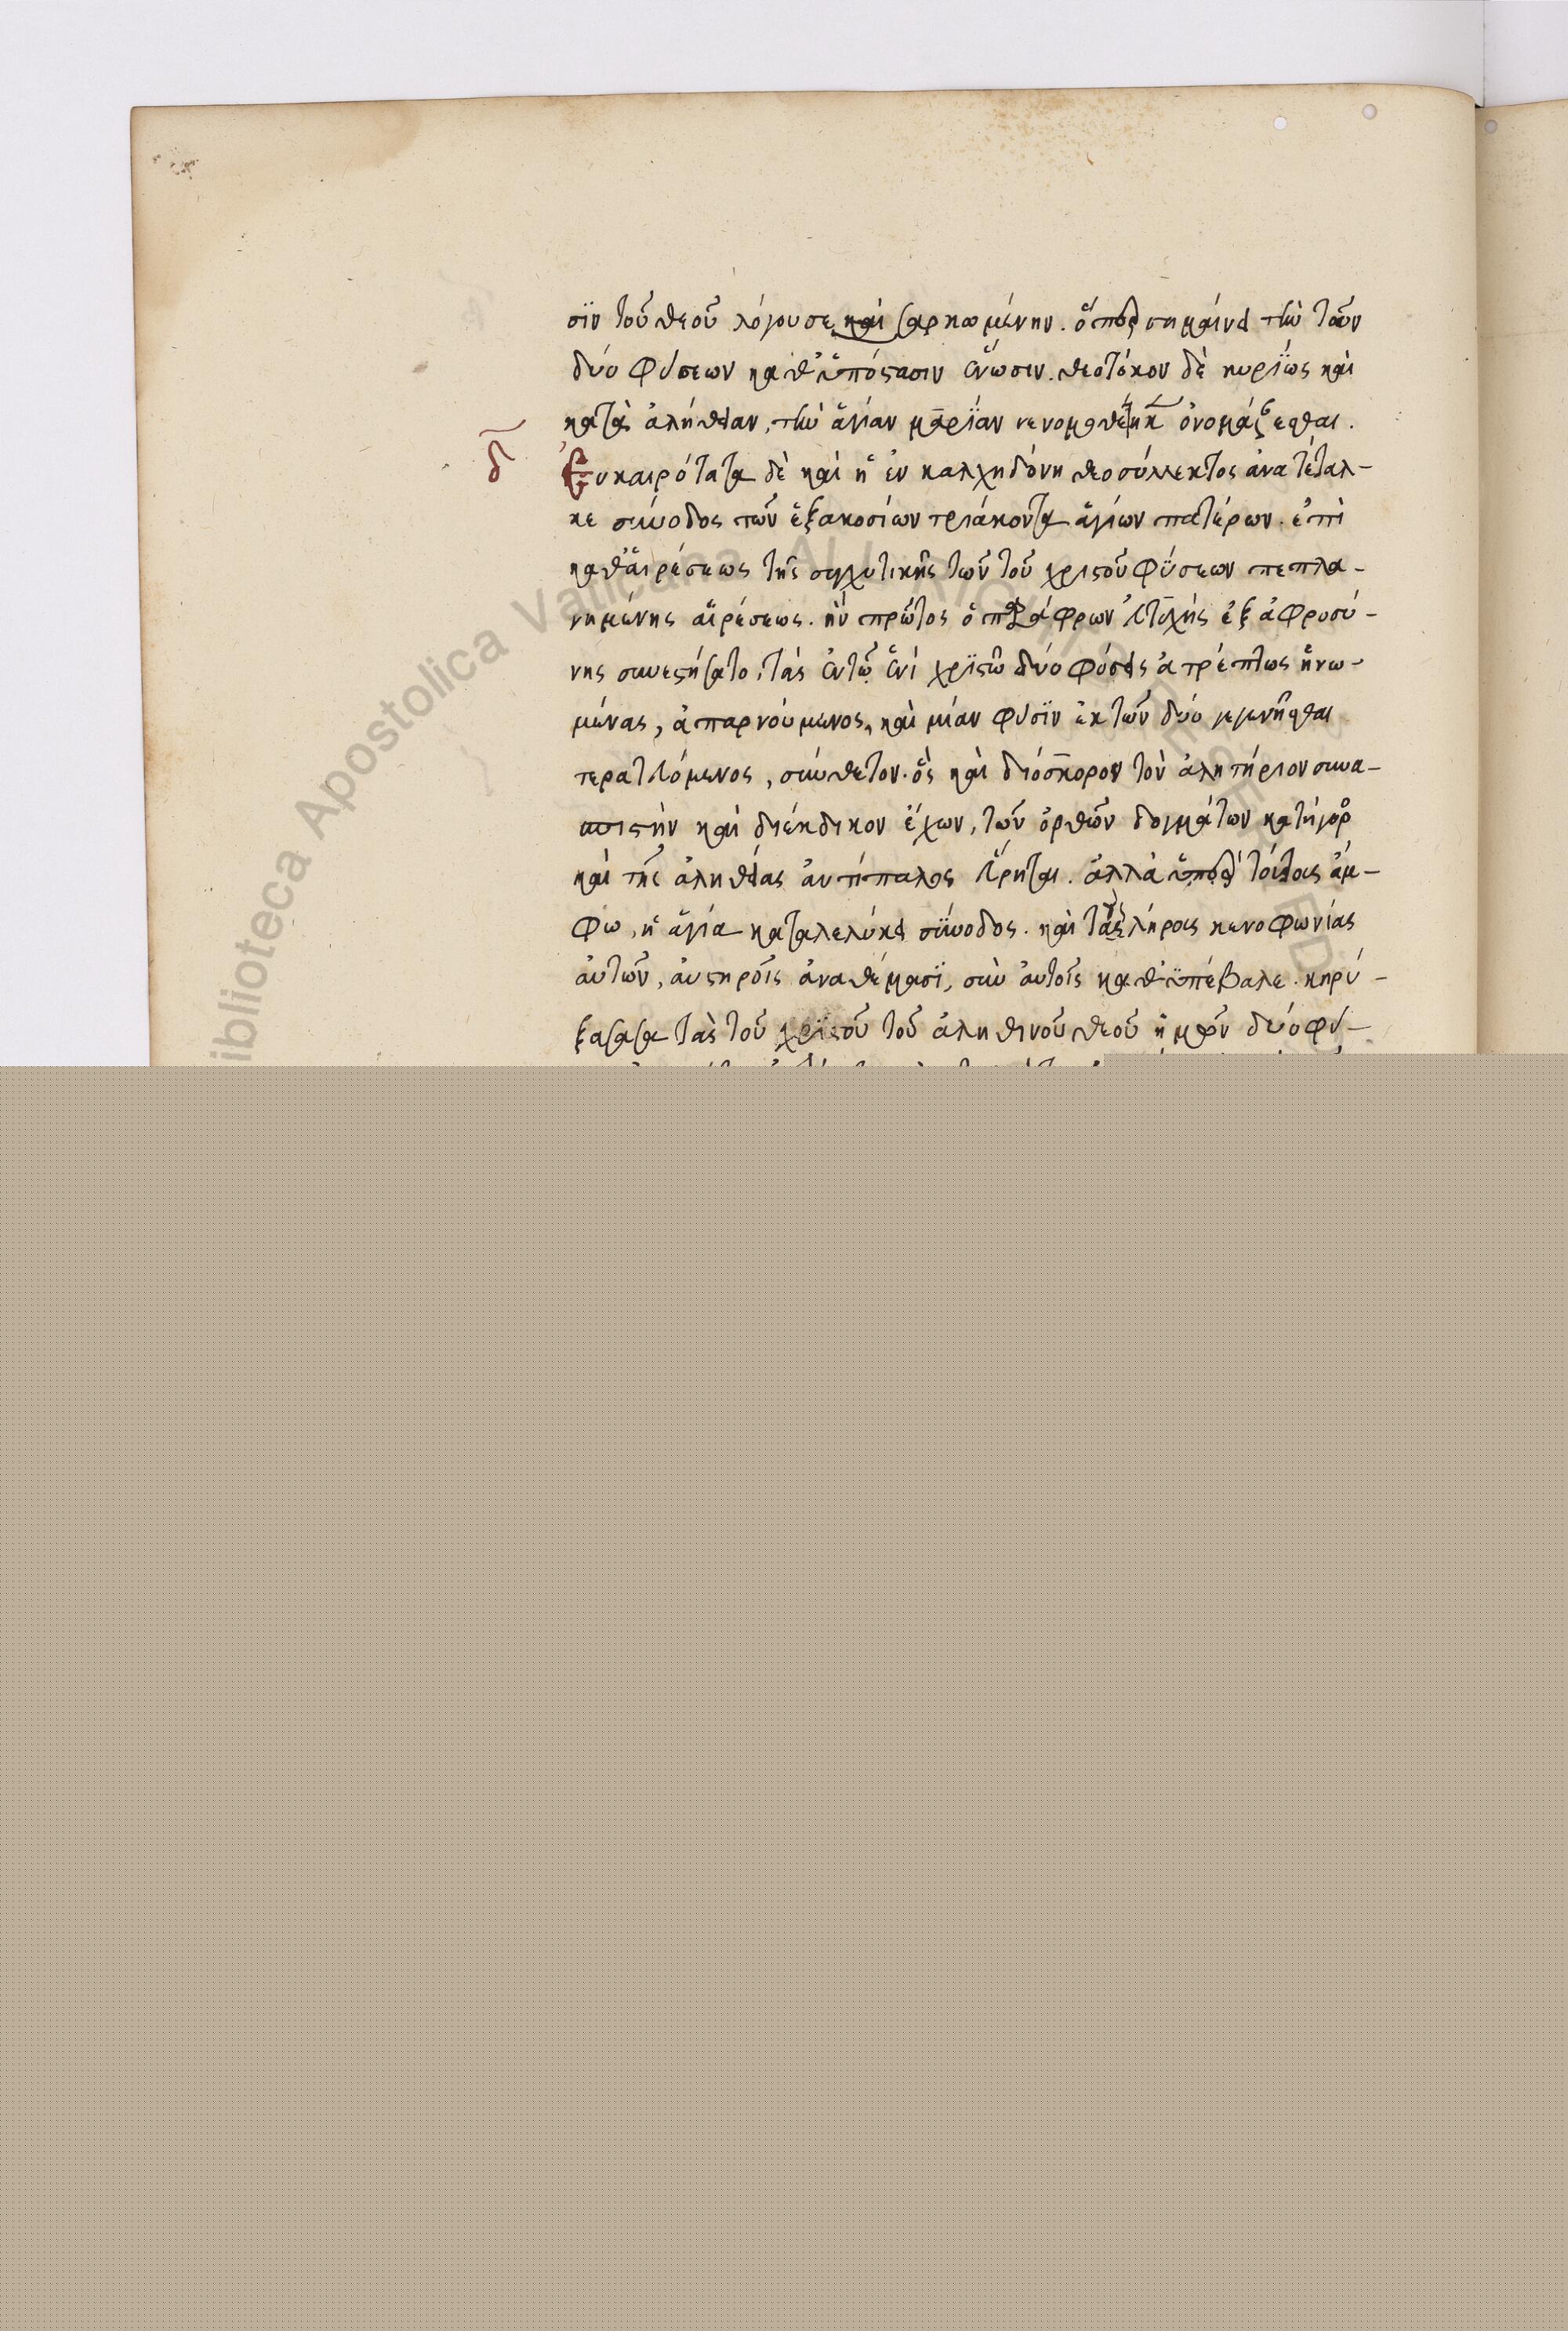 σϊν τοῦ θεοῦ λόγου σε καὶ σαρκωμένην. ὅπερ σημαίνει τὴν τῶν
δύο φύσεων καθ᾽ ὑπόστασιν ἕνωσιν. θεοτόκον δὲ κυρίως καὶ
κατὰ ἀλήθειαν, τὴν ἁγίαν μαρίαν νενομοθέτηκεν ὀνομάζεσθαι.
δ Εὐκαιρότατα δὲ καὶ ἡ ἐν καλχηδόνη θεοσύλλεκτος ἀνατέταλ-
κε σύνοδος τῶν ἑξακοσίων τριάκοντα ἁγίων πατέρων. ἐπὶ
καθαιρέσεως τῆς συγχυτικῆς τῶν τοῦ χριστοῦ φύσεων πεπλα-
νημένης αἱρέσεως. ἣν πρῶτος ὁ παράφρων εὐτυχὴς ἐξ ἀφροσύ-
νης συνεστήσατο, τὰς ἐν τῷ ἑνὶ χριστῷ δύο φύσεις ἀτρέπτως ἡνω-
μένας, ἀπαρνούμενος, καὶ μίαν φύσϊν ἐκ τῶν δύο γεγενῆσθαι
τερατευόμενος, σύνθετον. ὃς καὶ διόσκορον τὸν ἀλητήριον συνα-
σπιστὴν καὶ διέκδικον ἔχων, τῶν ὀρθῶν δογμάτων κατήγορος
καὶ τῆς ἀληθείας ἀντίπαλος εὕρηται. ἀλλὰ τούτοις ἄμ-
φω, ἡ ἁγία καταλελύκει σύνοδος. καὶ τὰς λήροις κενοφωνίας
αὐτῶν, αὐστηροῖς ἀναθέμασϊ, σὺν αὐτοῖς καθϋπέβαλε. κηρύ-
ξασα τὰς τοῦ χριστοῦ τοῦ ἀληθινοῦ θεοῦ ἡμῶν δύο φύ-
Biblioteca Apostolica Vaticana